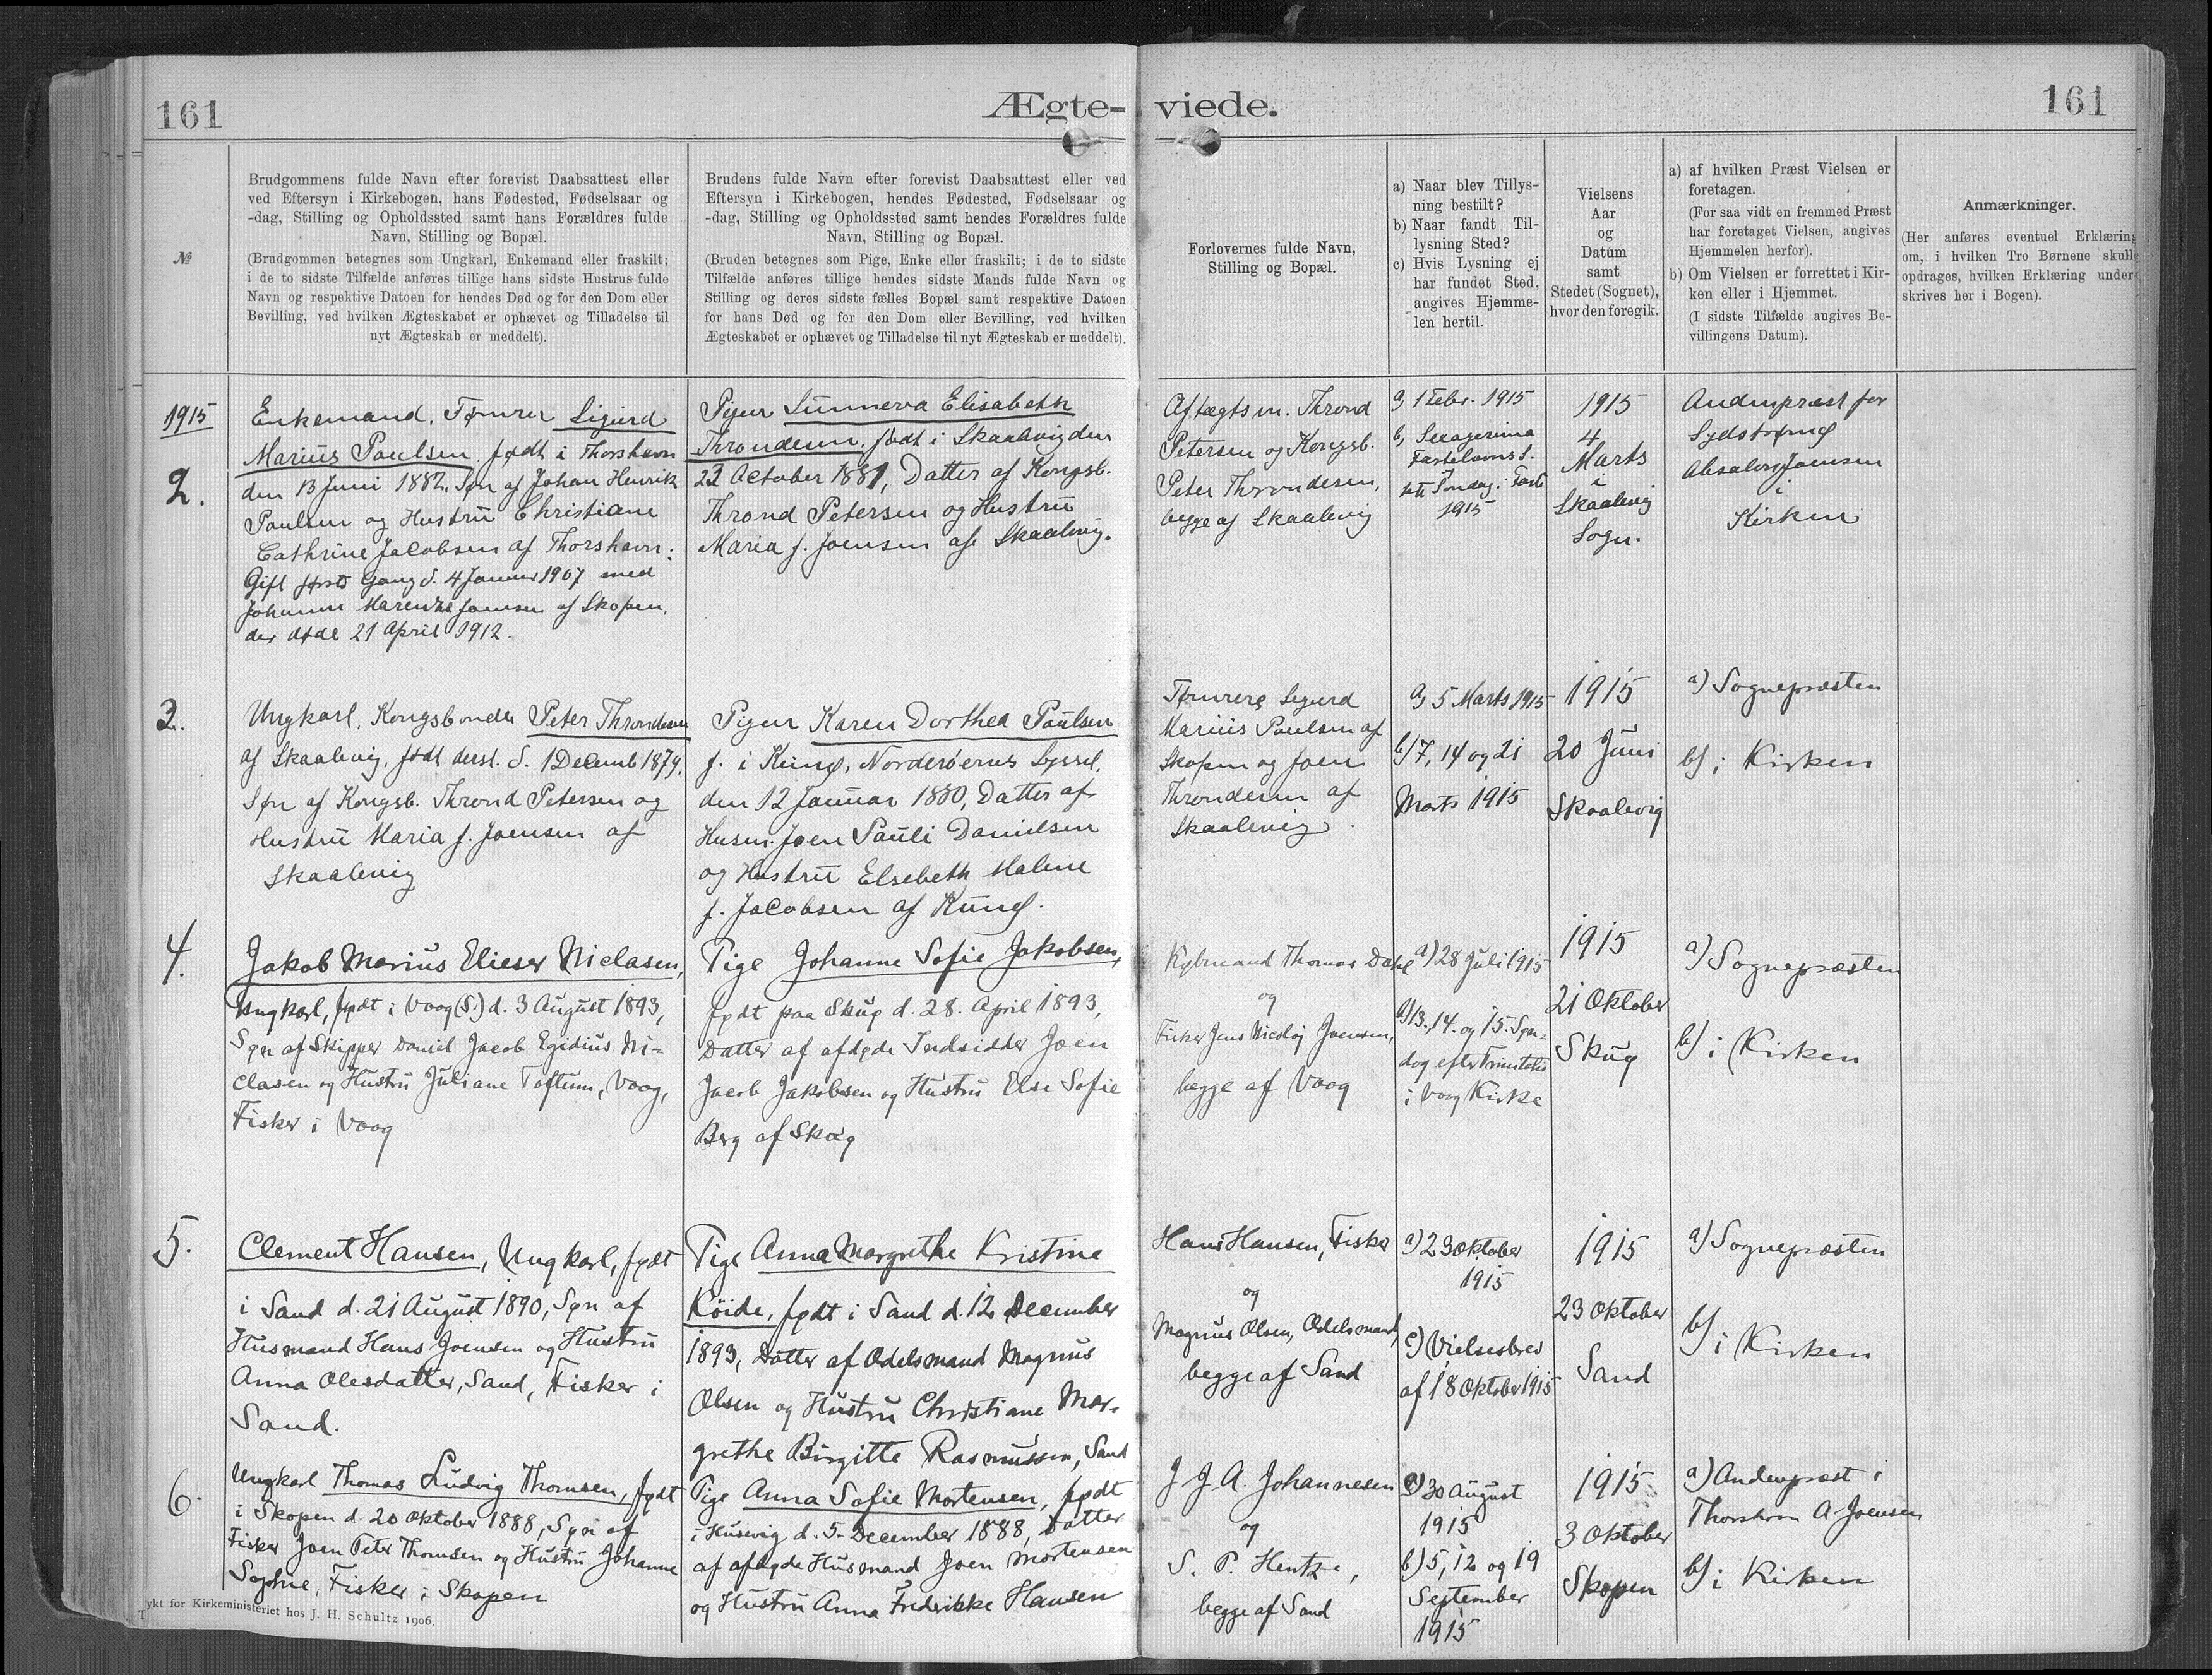 161
Ægte-
viede.
161
№
Brudgommens fulde Navn efter forevist Daabsattest eller
ved Eftersyn i Kirkebogen, hans Fødested, Fødselsaar og
-dag, Stilling og Opholdssted samt hans Forældres fulde
Navn, Stilling og Bopæl.
(Brudgommen betegnes som Ungkarl, Enkemand eller fraskilt;
i de to sidste Tilfælde anføres tillige hans sidste Hustrus fulde
Navn og respektive Datoen for hendes Død og for den Dom eller
Bevilling, ved hvilken Ægteskabet er ophævet og Tilladelse til
nyt Ægteskab er meddelt).
Brudens fulde Navn efter forevist Daabsattest eller ved
Eftersyn i Kirkebogen, hendes Fødested, Fødselsaar og
-dag, Stilling og Opholdssted samt hendes Forældres fulde
Navn, Stilling og Bopæl.
(Bruden betegnes som Pige, Enke eller fraskilt; i de to sidste
Tilfælde anføres tillige hendes sidste Mands fulde Navn og
Stilling og deres sidste fælles Bopæl samt respektive Datoen
for hans Død og for den Dom eller Bevilling, ved hvilken
Ægteskabet er ophævet og Tilladelse til nyt Ægteskab er meddelt).
Forlovernes fulde Navn,
Stilling og Bopæl.
a) Naar blev Tillys-
ning bestilt?
b) Naar fandt Til-
lysning Sted?
c) Hvis Lysning ej
har fundet Sted,
angives Hjemme-
len hertil.
Vielsens
Aar
og
Datum
samt
Stedet (Sognet),
hvor den foregik.
a) af hvilken Præst Vielsen er
foretagen.
(For saa vidt en fremmed Præst
har foretaget Vielsen, angives
Hjemmelen herfor).
b) Om Vielsen er forrettet i Kir-
ken eller i Hjemmet.
(I sidste Tilfælde angives Be-
villingens Datum).
Anmærkninger.
(Her anføres eventuel Erklæring
om, i hvilken Tro Børnene skulle
opdrages, hvilken Erklæring under-
skrives her i Bogen).
1915
2.
Enkemand, Tømrer Sigurd
Marius Paulsen, født i Thorshavn
den 13 Juni 1882, Søn af Johan Henrik
Paulsen og Hustru Christiane
Cathrine Jacobsen af Thorshavn:
Gift første Gang d. 4 Januar 1907 med
Johanne Marentze Joensen af Skopen,
der døde 21 April 1912.
Pigen Sunneva Elisabeth
Throndesen, født i Skaalevig den
23 October 1881, Datter af Kongsb.
Thrond Petersen og Hustru
Maria f. Joensen af Skaalevig.
Aftægtsm. Thrond
Petersen og Kongsb.
Peter Throndesen,
begge af Skaalevig
a, 1 Febr. 1915
b, Sexagesima
Fastelavns S.
1ste Søndag i Faste
1915
1915
4
Marts
i
Skaalevig
Sogn.
Andenpræst for
Sydstrømø
Absalon Joensen
i
Kirken
3.
Ungkarl, Kongsbonde Peter Throndesen
af Skaalevig, født derst. d. 1 Decemb 1879,
Søn af Kongsb. Thrond Petersen og
Hustru Maria f. Joensen af
Skaalevig
Pigen Karen Dorthea Paulsen
f. i Kunø, Norderøernes Syssel,
den 12 Januar 1880, Datter af
Husm. Joen Pauli Danielsen
og Hustru Elsebeth Malene
f. Jacobsen af Kunø.
Tømrere Sigurd
Marius Paulsen af
Skopen og Joen
Throndesen af
Skaalevig.
a, 5 Marts 1915
b) 7, 14 og 21
Marts 1915
1915
20 Juni
Skaalevig
a) Sognepræsten
b) i Kirken
4.
Jakob Marius Elieser Niclasen,
Ungkarl, født i Vaag (S.) d. 3 August 1893,
Søn af Skipper Daniel Jacob Egidius Ni-
clasen og Hustru Juliane Toftum, Vaag,
Fisker i Vaag
Pige Johanne Sofie Jakobsen,
født paa Skuø d. 28. April 1893,
Datter af afdøde Indsidder Joen
Jacob Jakobsen og Hustru Else Sofie
Berg af Skuø
Købmand Thomas Dahl
og
Fisker Jens Nicolaj Joensen,
begge af Vaag
a) 28 Juli 1915
b) 13., 14. og 15. Søn-
dag efter Trinitatis
i Vaag Kirke
1915
21 Oktober
Skuø
a) Sognepræsten
b) i Kirken
5.
Clement Hansen, Ungkarl, født
i Sand d. 21 August 1890, Søn af
Husmand Hans Joensen og Hustru
Anna Olesdatter, Sand, Fisker i
Sand.
Pige Anna Margrethe Kristine
Köide, født i Sand d. 12 December
1893, Datter af Odelsmand Magnus
Olsen og Hustru Christiane Mar-
grethe Birgitte Rasmussen, Sand
Hans Hansen, Fisker
og
Magnus Olsen, Odelsmand,
begge af Sand
a) 23 Oktober
1915
c) Vielsesbrev
af 18 Oktober 1915
1915
23 Oktober
Sand
a) Sognepræsten
b) i Kirken
6.
Ungkarl Thomas Ludvig Thomsen, født
i Skopen d. 20 Oktober 1888, Søn af
Fisker Joen Peter Thomsen og Hustru Johanne
Sophie, Fisker i Skopen
Pige Anna Sofie Mortensen, født
i Husevig d. 5. December 1888, Datter
af afdøde Husmand Joen Mortensen
og Hustru Anna Frederikke Hansen
J. J. A. Johannesen
og
S. P. Hentze,
begge af Sand
a) 30 August
1915
b) 5, 12 og 19
September
1915
1915
3 Oktober
Skopen
a) Andenpræst i
Thorshavn A. Joensen
b) i Kirken
Trykt for Kirkeministeriet hos J. H. Schultz 1906.